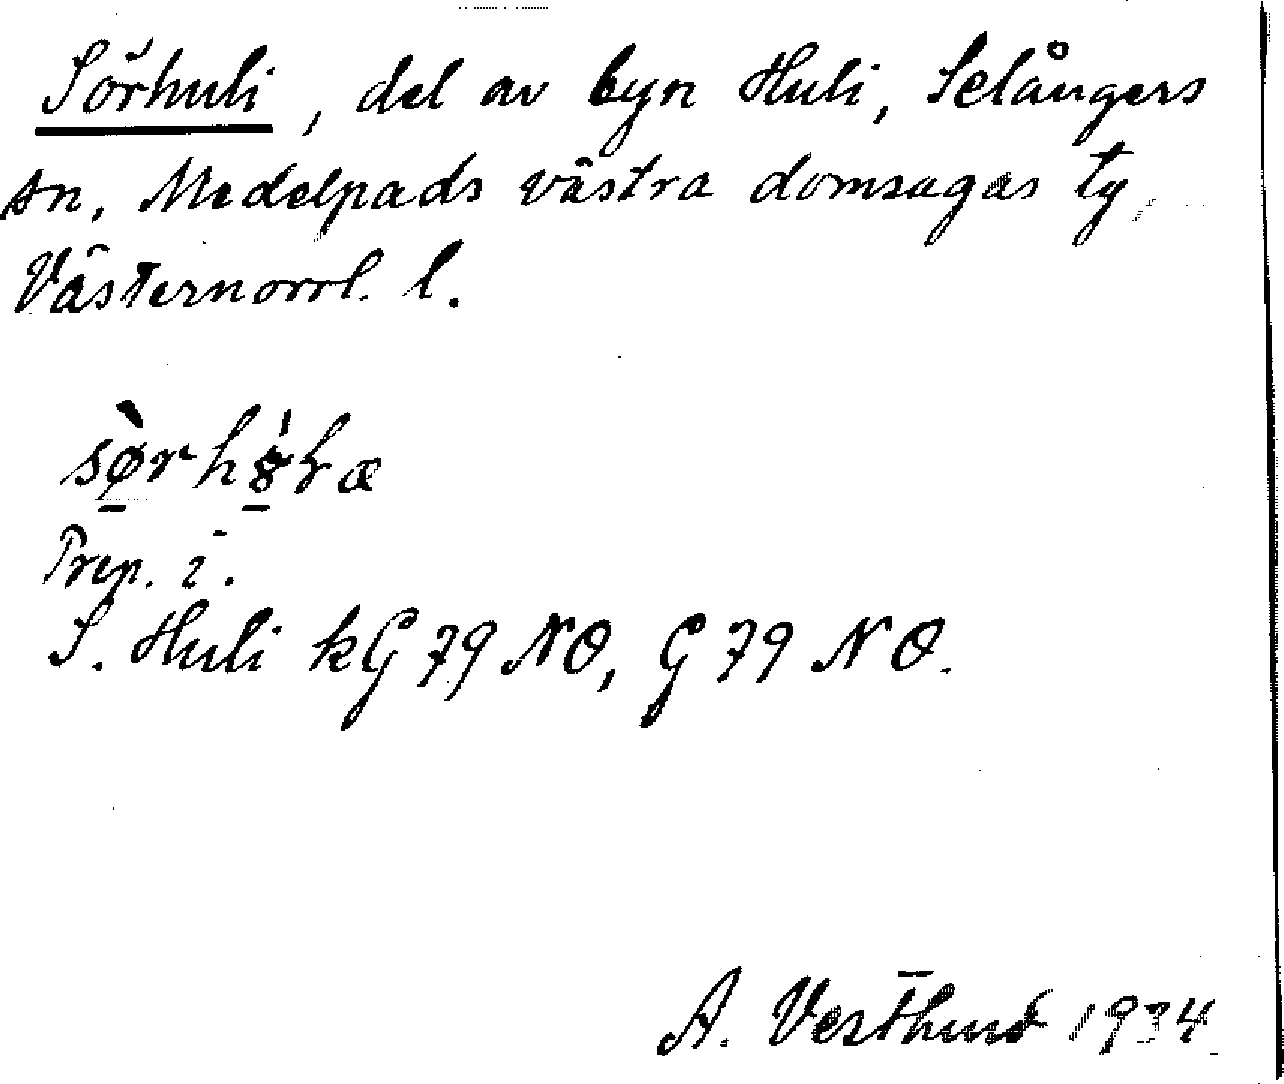 Sörhuli, del av byn Huli, Selångers
sn, Medelpads västra domsagas tg,
Västernorrl. l.
Prep. i.
S. Huli kG 79 NO, G 79 NO.
A. Vestlund 1934